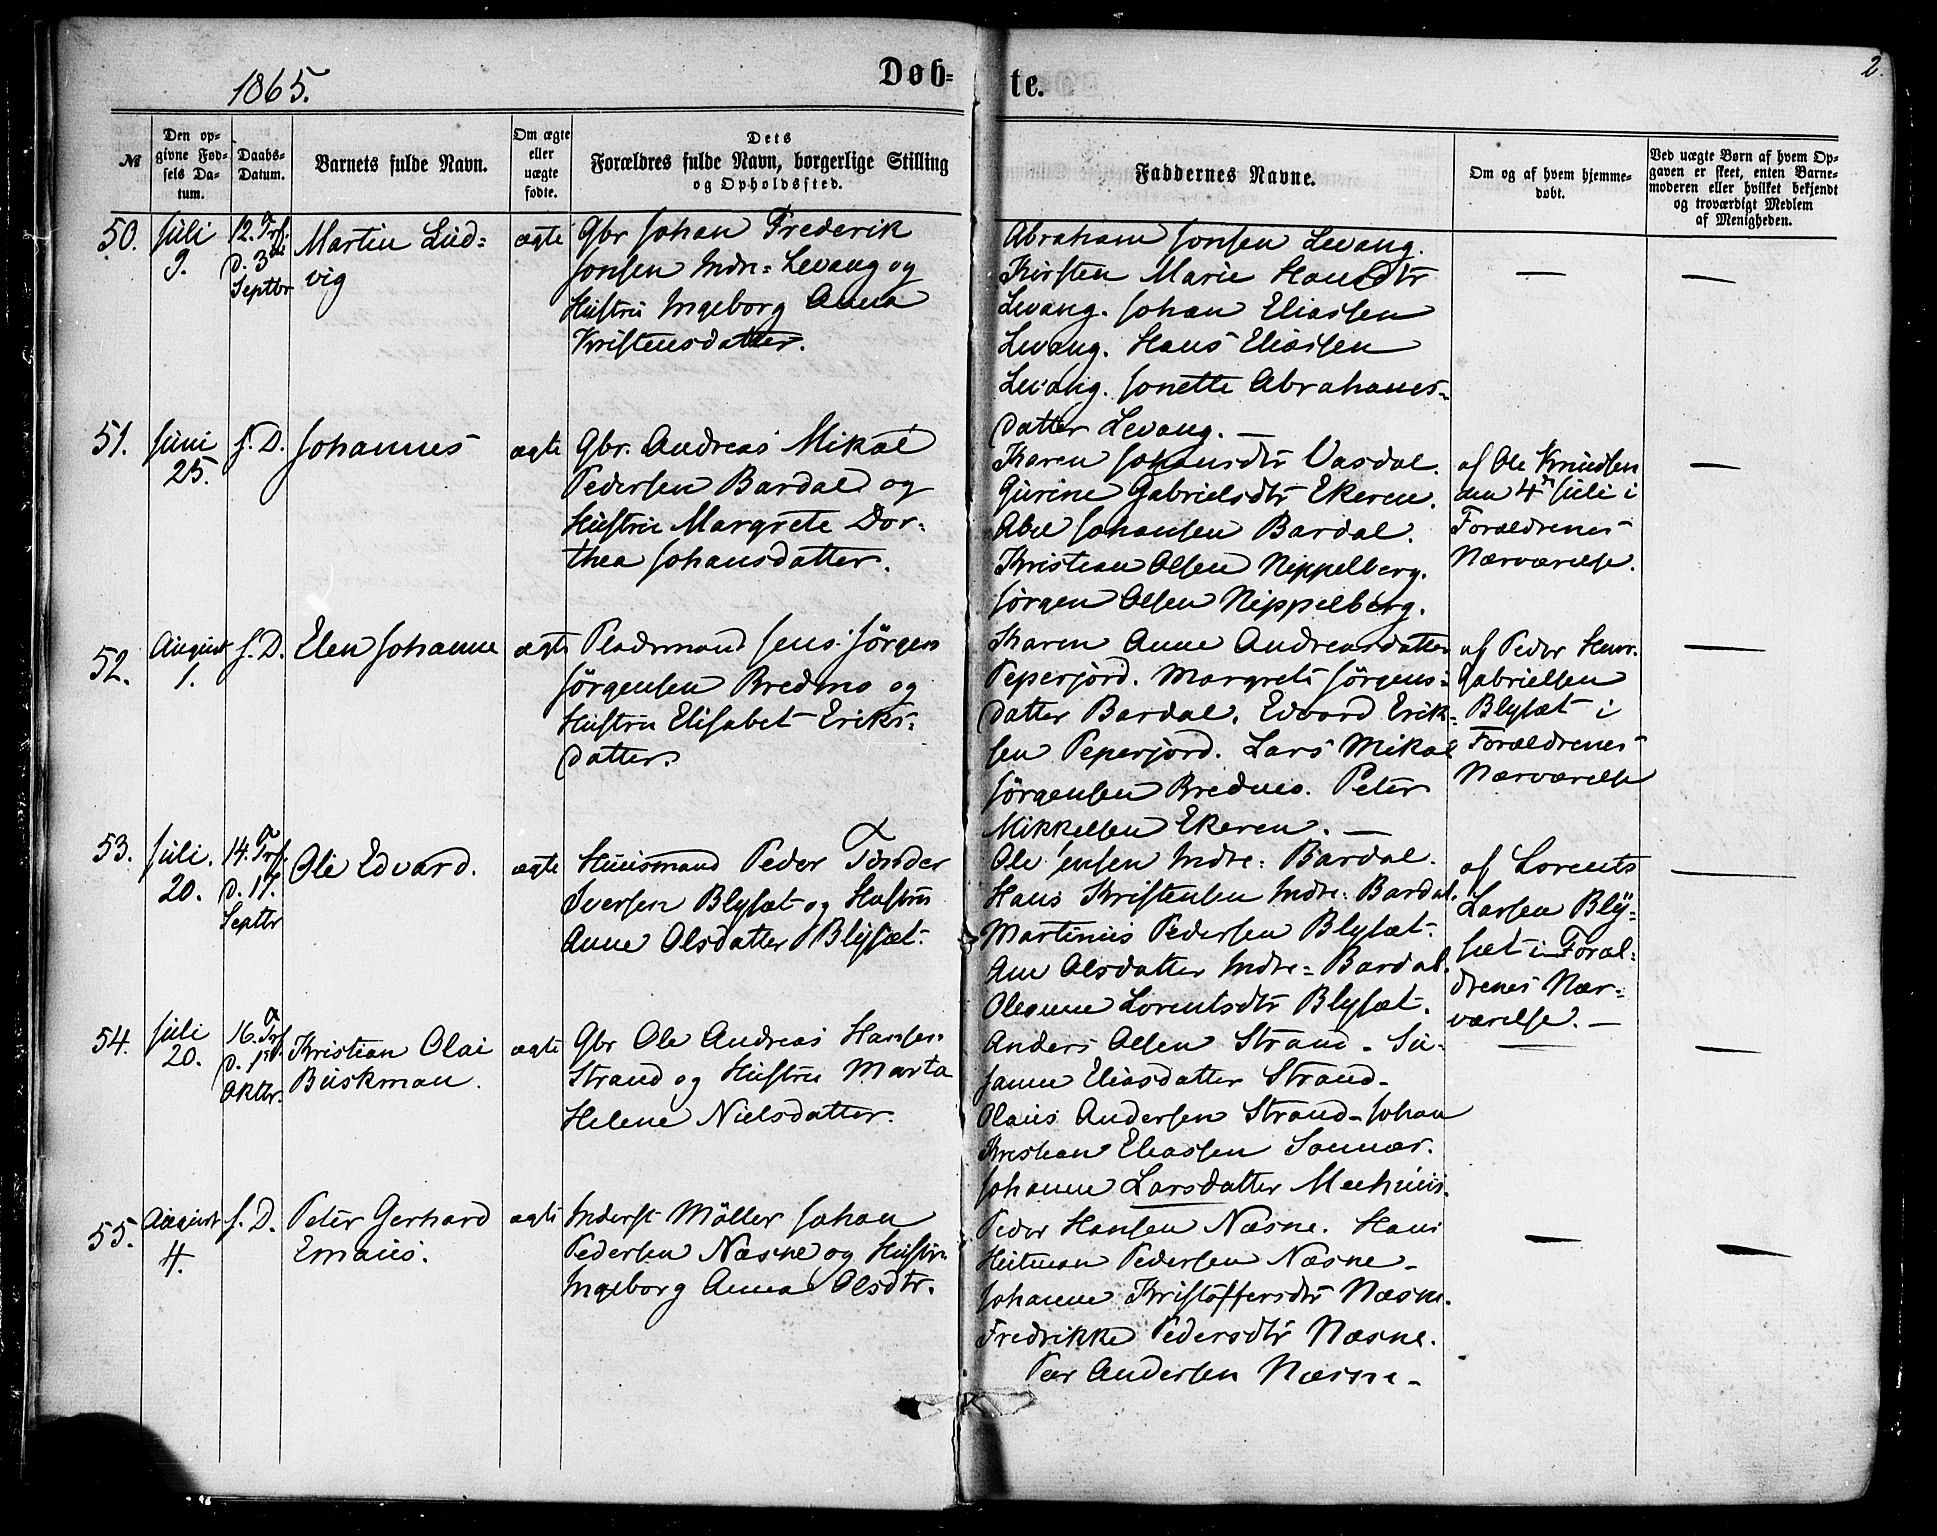 1865.
Døb=
te.
2.
№
Den op-
givne Fød-
sels Da-
tum.
Daabs-
Datum.
Barnets fulde Navn.
Om ægte
eller
uægte
fødte.
Dets
Forældres fulde Navn, borgerlige Stilling
og Opholdssted.
Faddernes Navne.
Om og af hvem hjemme-
døbt.
Ved uægte Børn af hvem Op-
gaven er skeet, enten Barne-
moderen eller hvilket bekjendt
og troværdigt Medlem
af Menigheden.
50.
Juli
9.
12. Trf.
d. 3die
Septbr
Martin Lud=
vig
ægte
Gbr Johan Frederik
Jonsen Indre=Levang og
Hustru Ingeborg Anna
Kristensdatter.
Abraham Jonsen Levang.
Kirsten Marie Hansdtr
Levang. Johan Eliassen
Levang. Hans Eliassen
Levang. Jonette Abrahams=
datter Levang. —
—
—
51.
Juni
25.
s. D.
Johannes
ægte
Gbr. Andreas Mikal
Pedersen Bardal og
Hustru Margrete Dor=
thea Johansdatter.
Karen Johansdtr Vasdal.
Gurine Gabrielsdtr Ekeren.
Abel Johansen Bardal.
Kristian Olsen Nippelberg.
Jørgen Olsen Nippelberg.
af Ole Knudsen
den 4de Juli i
Forældrenes
Nærværelse.
—
52.
August
1.
s. D.
Elen Johanne
ægte
Pladsmand Jens Jørgen
Jørgensen Bredmo og
Hustru Elisabet Eriks=
datter.
Karen Anne Andreasdatter
Peperjord. Margrete Jørgens=
datter Bardal. Edvard Erik=
sen Peperjord. Lars Mikal
Jørgensen Bredmo. Peter
Mikkelsen Ekeren. —
af Peder Henr.
Gabrielsen
Blysæt i
Forældrenes
Nærværelse
—
53.
Juli.
20.
14. Trf.
d. 17.
Septbr
Ole Edvard.
ægte
Huusmand Peder Tønder
Iversen Blysæt og Hustru
Anne Olsdatter Blysæt.
Ole Jensen Indre=Bardal.
Hans Kristensen Indre=Bardal.
Martinus Pedersen Blysæt.
Ane Olsdatter Indre=Bardal.
Oleanne Lorentsdtr Blysæt.
af Lorents
Larsen Bly=
sæt i Foræl=
drenes Nær=
værelse. —
—
54.
Juli
20.
16. Trf
d. 1ste
Oktbr.
Kristian Olai
Buskman.
ægte
Gbr Ole Andreas Hansen
Strand og Hustru Marta
Helene Nielsdatter.
Anders Olsen Strand. Su=
sanne Eliasdatter Strand.
Olaus Andersen Strand. Johan
Kristian Eliassen Sannær.
Johanne Larsdatter
—
—
55.
August
4.
s. D.
Peter Gerhard
Emaus.
ægte
Inderst Møller Johan
Pedersen Næsne og Hustru
Ingeborg Anna Olsdtr.
Peder Hansen Næsne. Hans
Heitman Pedersen Næsne.
Johanne Kristoffersdtr Næsne.
Fredrikke Pedersdtr Næsne.
Per Andersen Næsne.
—
—